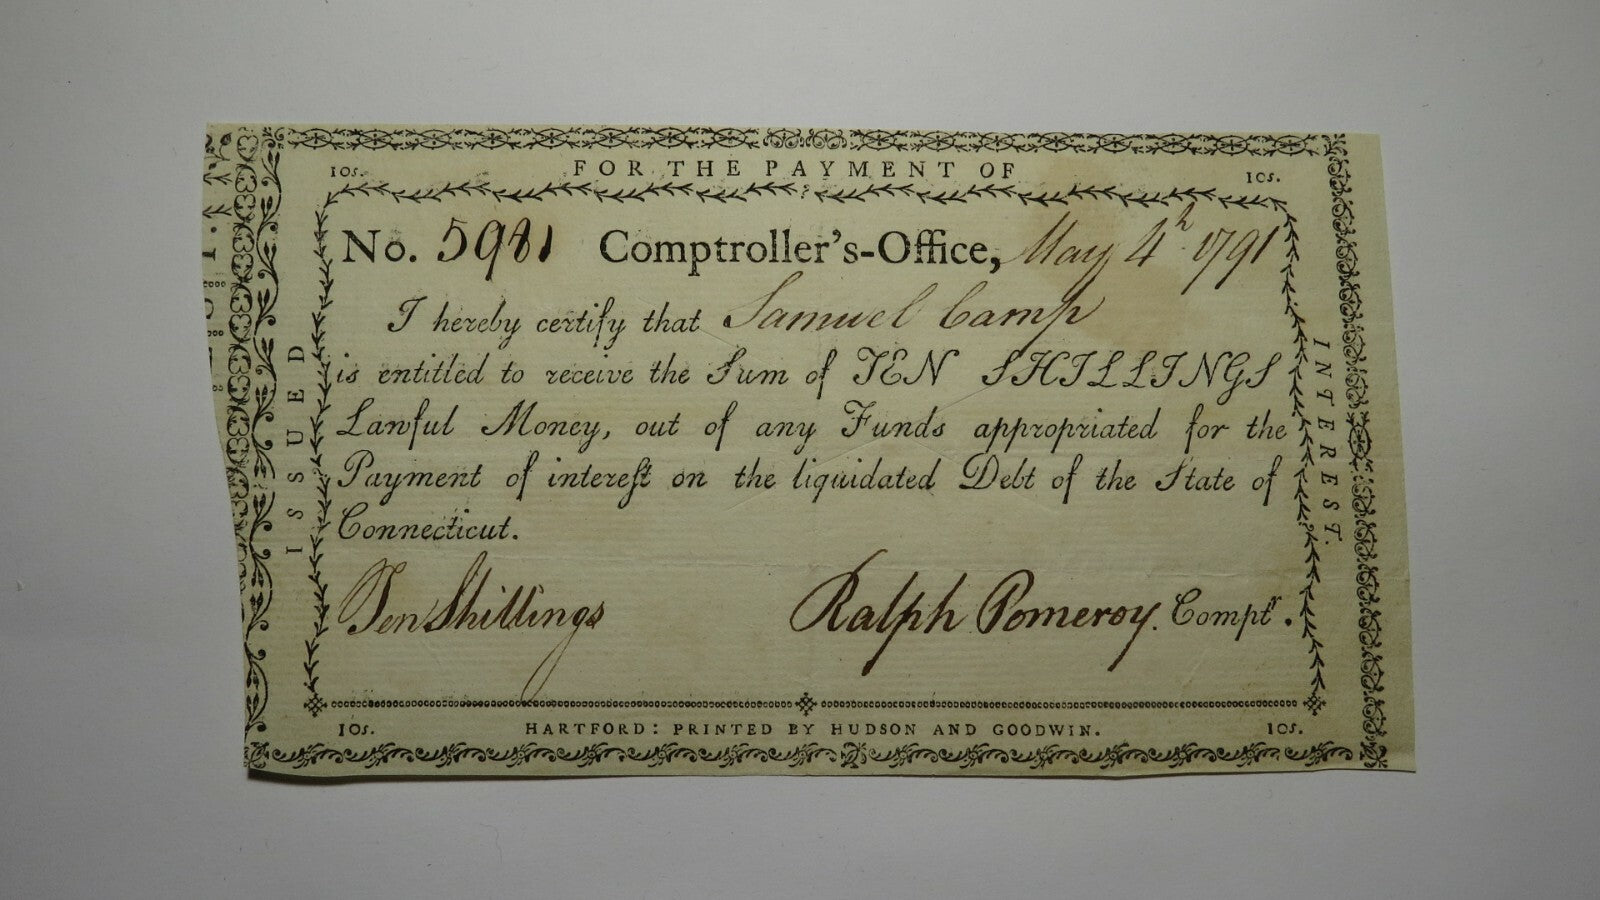 10s. FOR THE PAYMENT OF 10s.
No. 5981 Comptroller's-Office, May 4th 1791
I hereby certify that Samuel Camp
is entitled to receive the Sum of TEN SHILLINGS
Lawful Money, out of any Funds appropriated for the
Payment of intereſt on the liquidated Debt of the State of
Connecticut.
Ten Shillings Ralph Pomeroy. Comptr.
10s. HARTFORD: PRINTED BY HUDSON AND GOODWIN. 10s.
ISSUED
INTEREST.